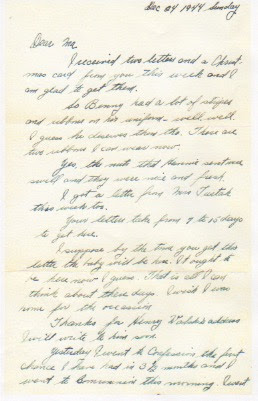 Dec 24 1944 Sunday
Dear Ma
I received two letters and a Christ-
mas card from you this week and I
am glad to get them.
So Benny had a lot of stripes
and ribbons on his uniform - well, well.
I guess he deserves them tho. There are
two ribbons I can wear now.
Yes, the nuts that sent were
swell and they were nice and fresh.
I got a letter from Mrs
this week too.
Your letters take from 9 to 15 days
to get here.
I suppose by the time you get this
letter the baby will be here. It ought to
be here now I guess. That is all I can
think about these days. I wish I were
home for the occasion
Thanks for Henry address
I will write to him soon.
Yesterday I went to Confession the first
chance I have had in 3½ months and I
went to Communion this morning. I went